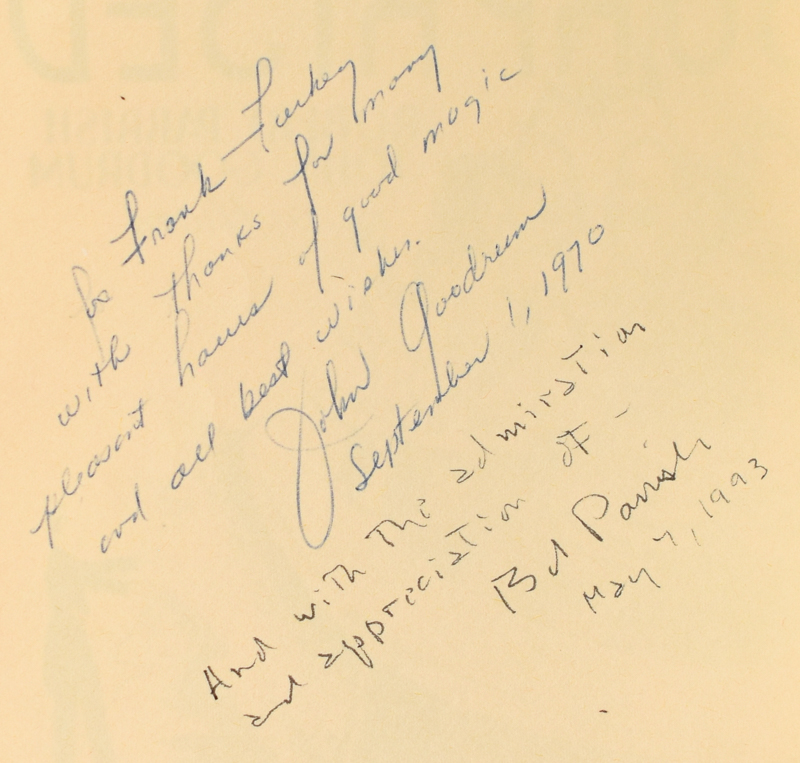 to Frank Furkey
with thanks for many
pleasant hours of good magic
and all best wishes.
John Goodrum
September 1, 1970
And with the admiration
and appreciation of -
Bob Parrish
May 7, 1993